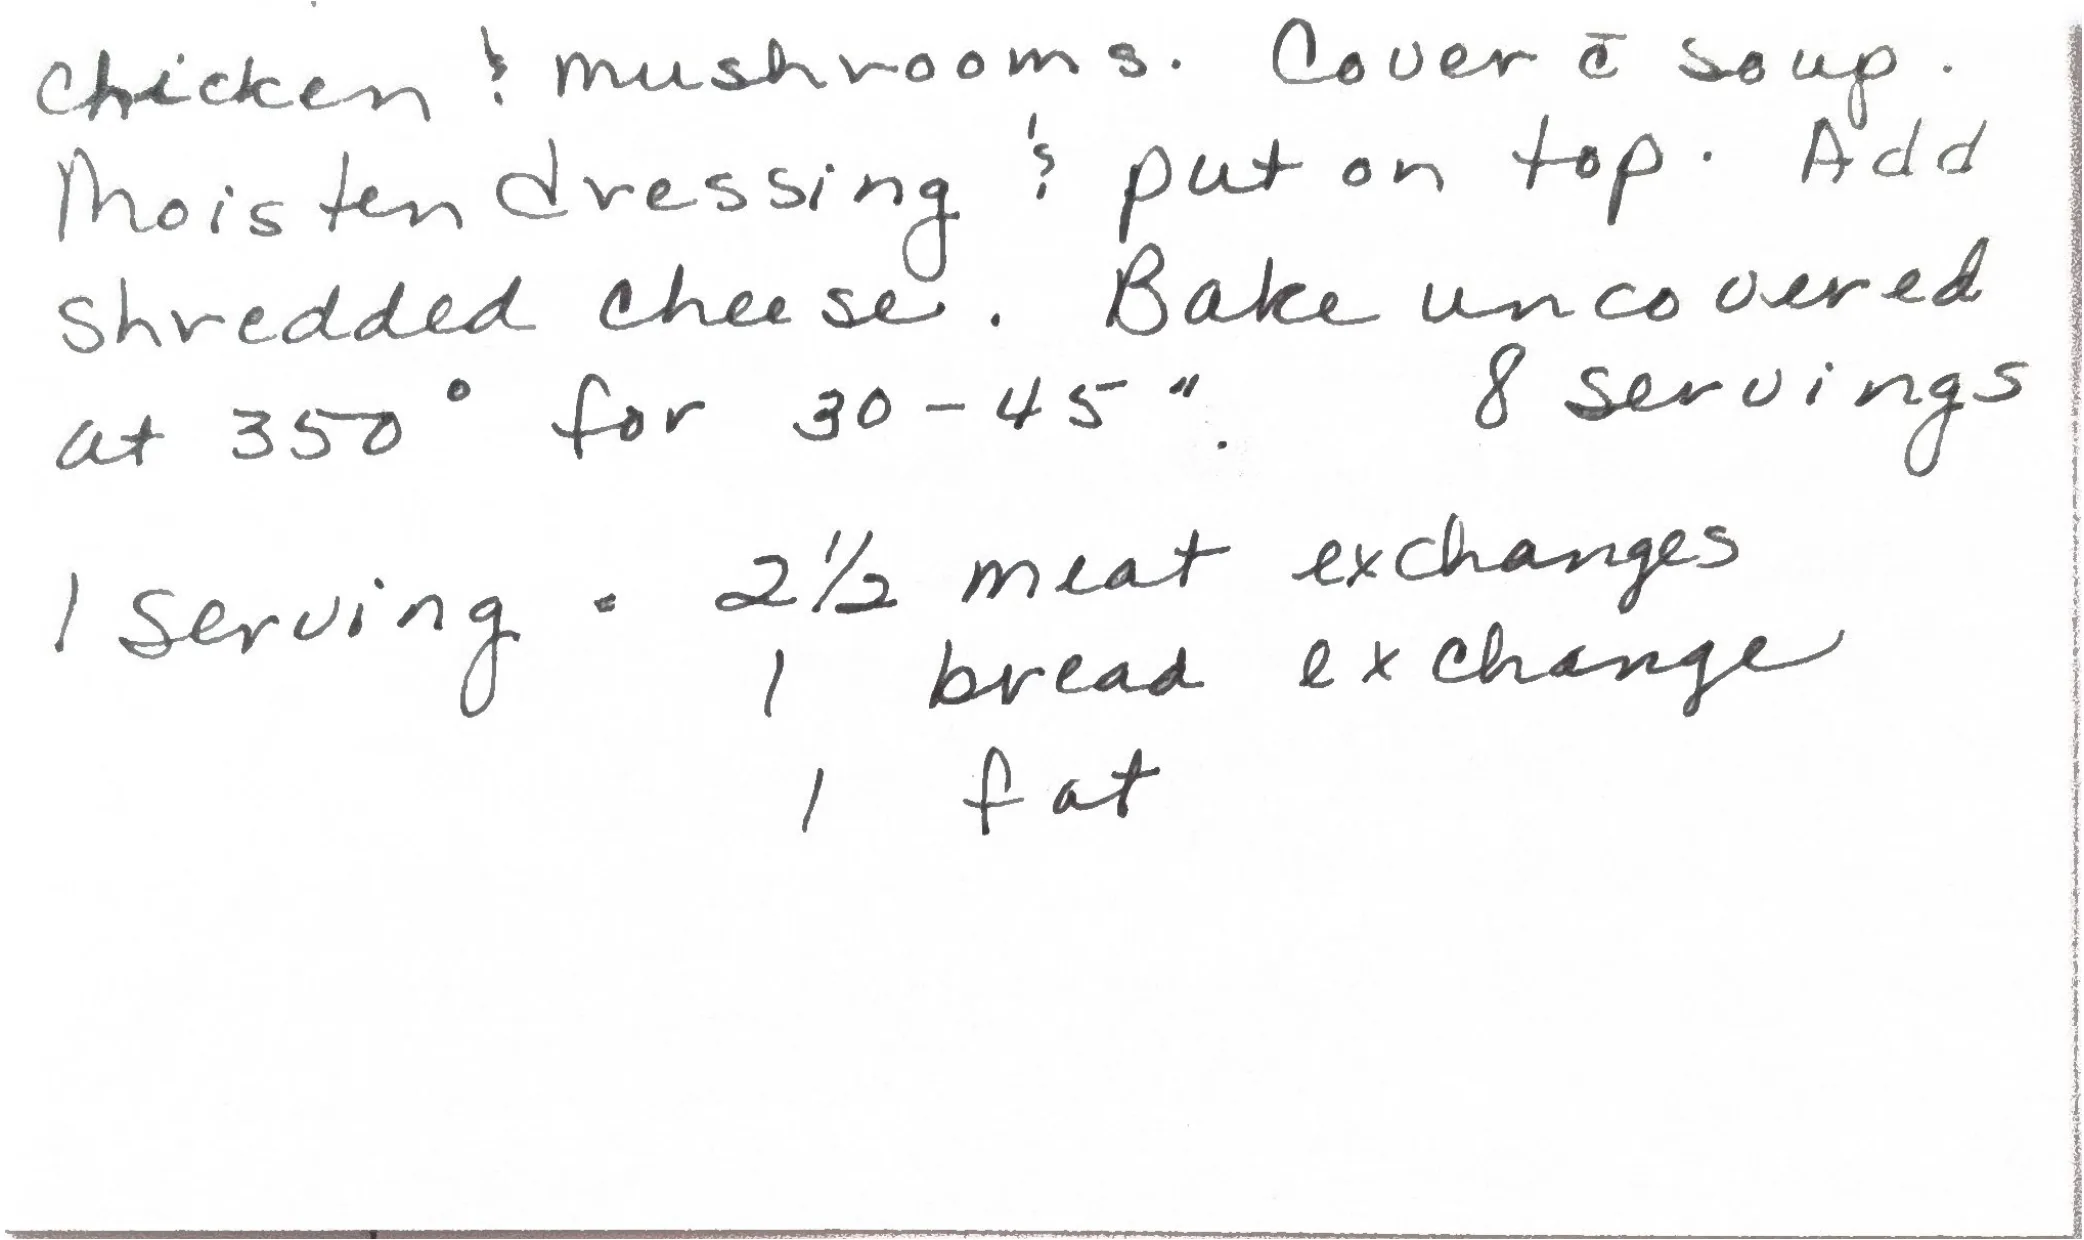 chicken & mushrooms. Cover c̄ soup.
Moisten dressing & put on top. Add
shredded cheese. Bake uncovered
at 350° for 30-45". 8 servings
1 serving = 2½ meat exchanges
1 bread exchange
1 fat